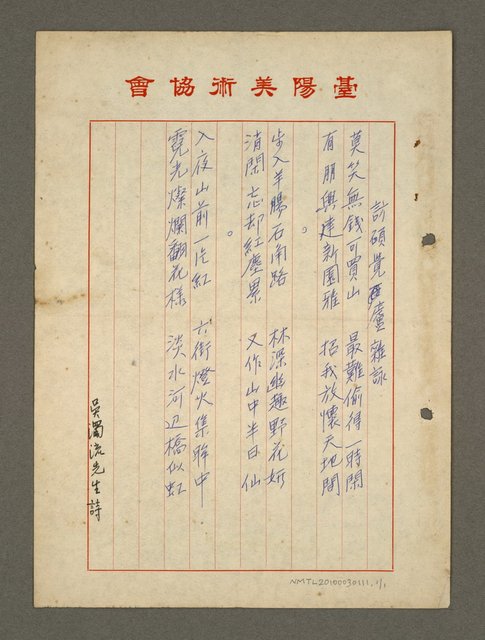 臺陽美術協會
訪碩覺盦雜詠
莫笑無錢可買山 最難偷得一時閑
有朋興建新園雅 招我放懷天地間
。
步入羊腸石角路 林深幽趣野花妍
消閑忘却紅塵累 又作山中半日仙
。
入夜山前一片紅 六街燈火集眸中
霓光燦爛翻花樣 淡水河边橋似虹
吳濁流先生詩
NMTL20100030111.1/1